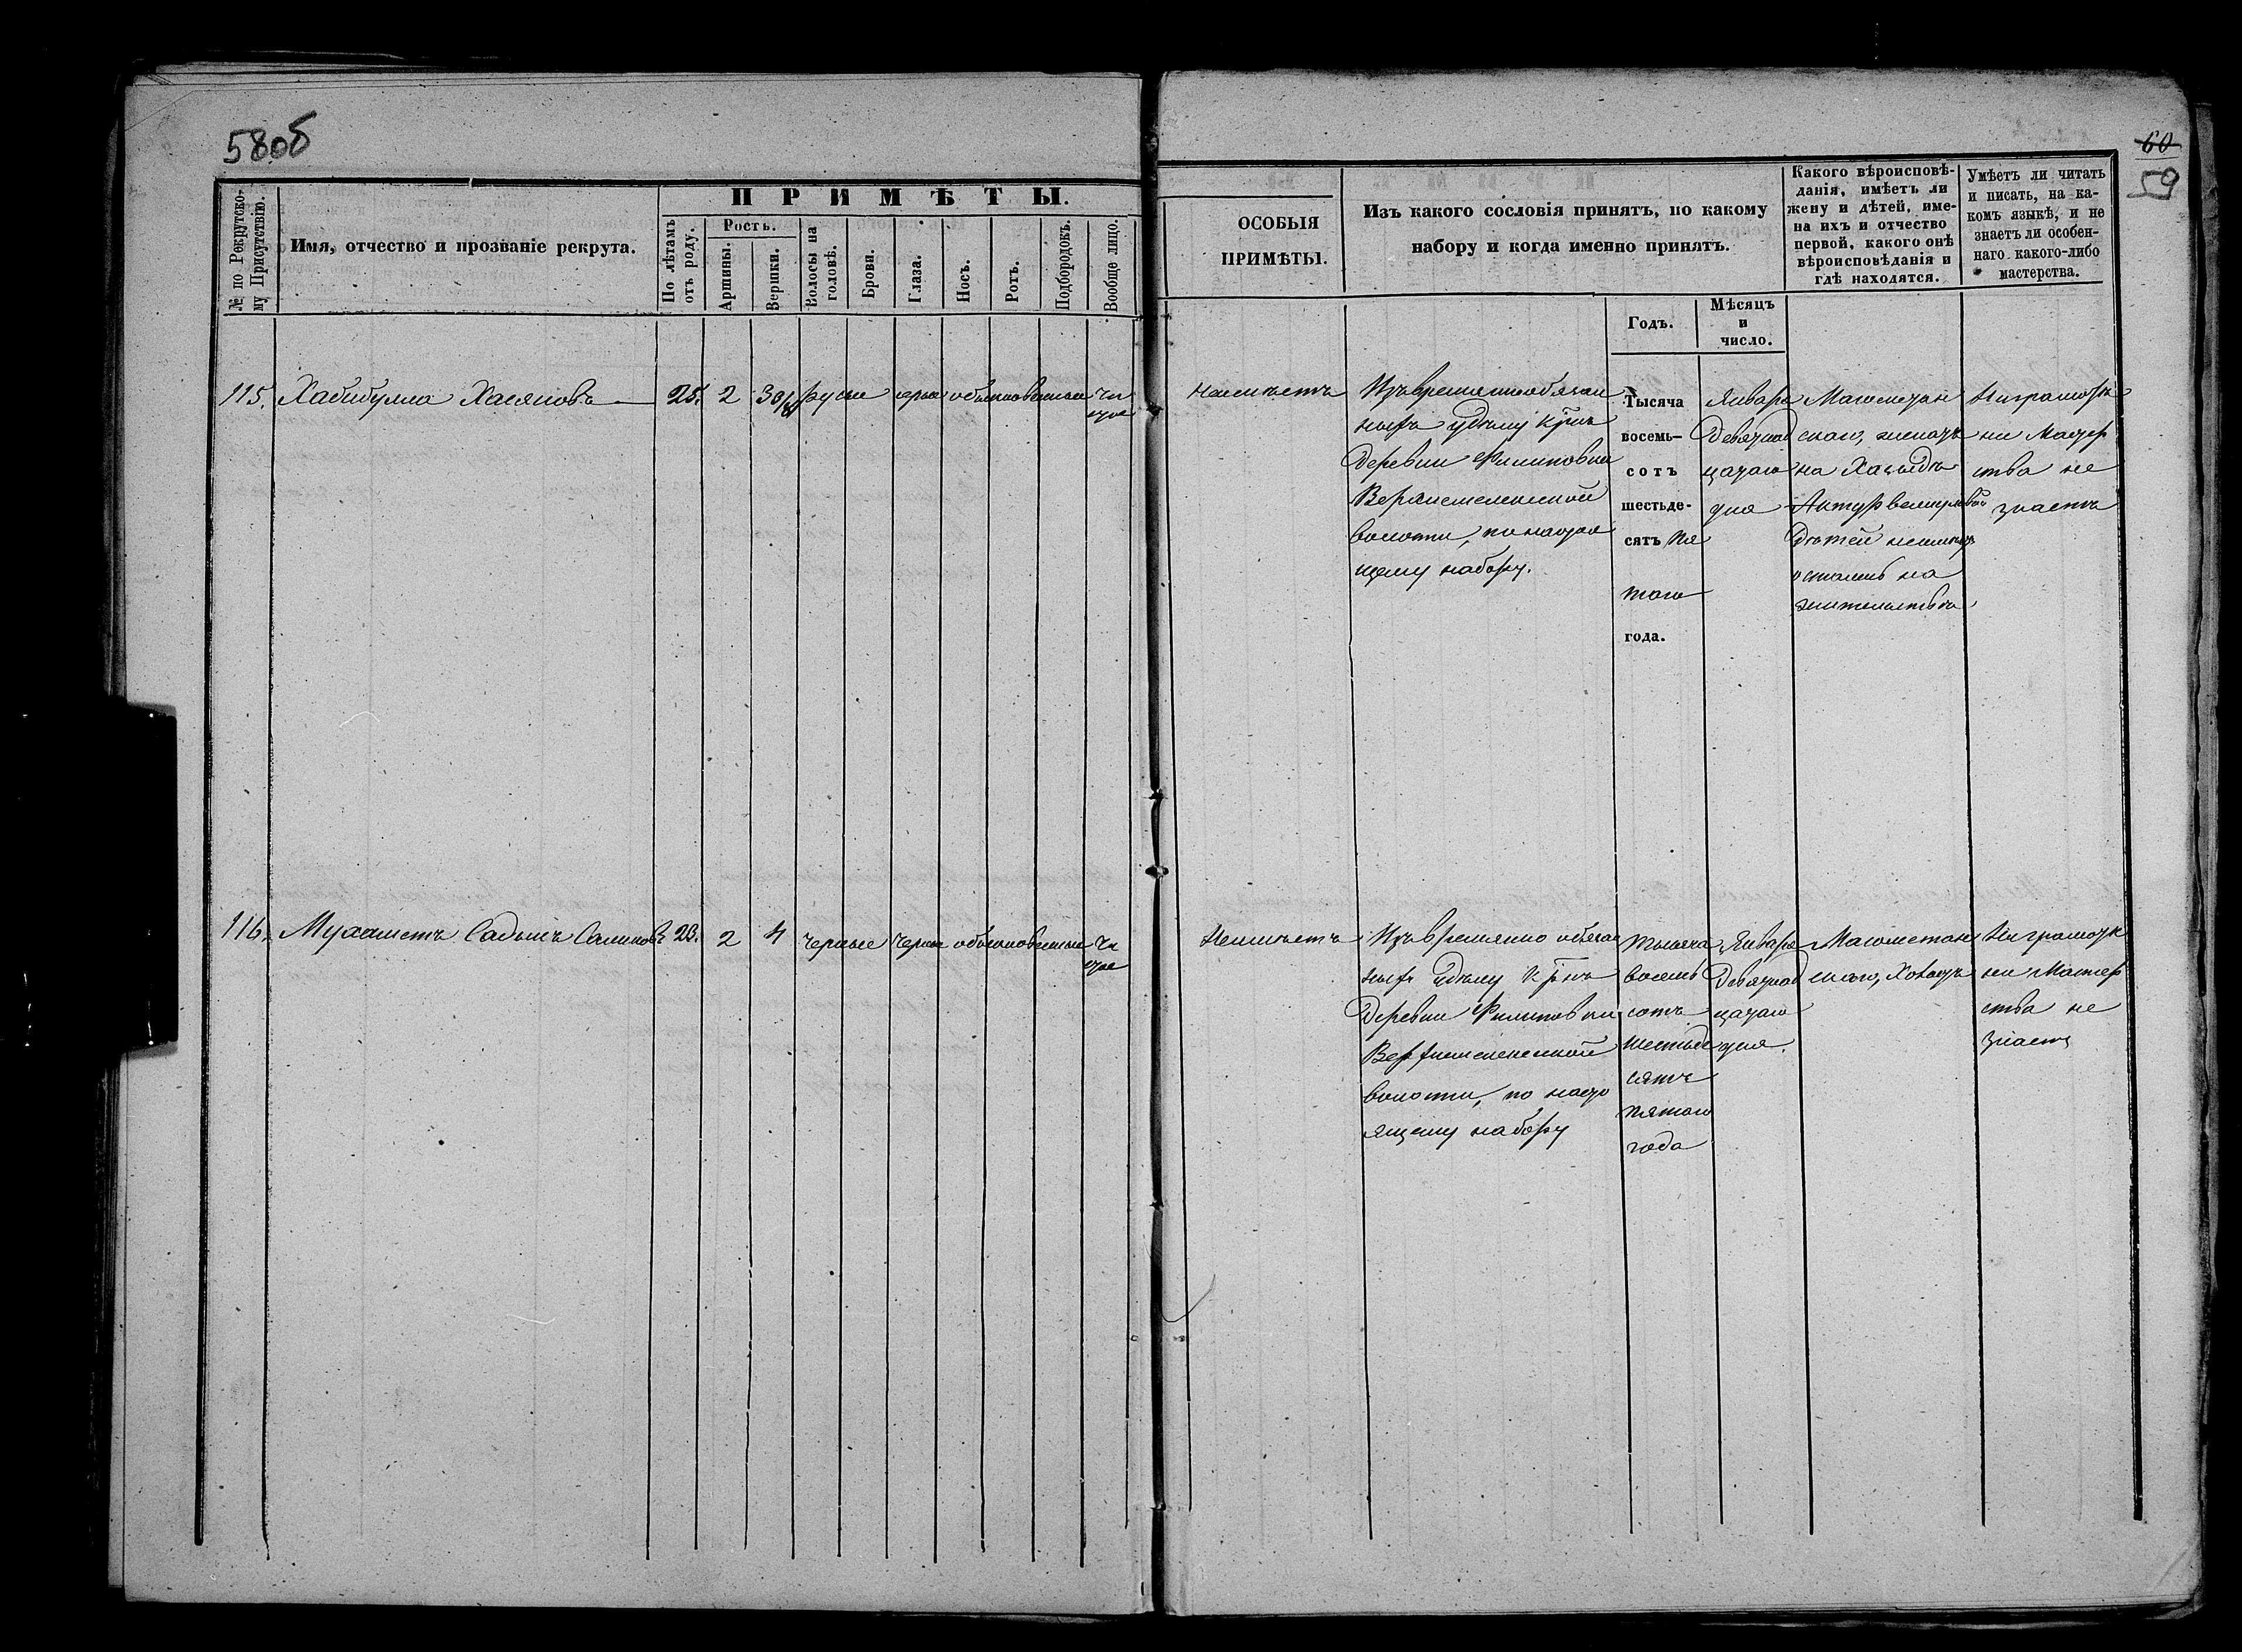 58об
60
59
№ по Рекрутско-
му Присутствію.
Имя, отчество и прозваніе рекрута.
ПРИМѢТЫ.
По лѣтамъ
отъ роду.
Ростъ.
Аршины.
Вершки.
Волосы на
головѣ.
Брови.
Глаза.
Носъ.
Ротъ.
Подбородокъ.
Вообще лицо.
ОСОБЫЯ
ПРИМѢТЫ.
Изъ какого сословія принятъ, по какому
набору и когда именно принятъ.
Годъ.
Мѣсяцъ
и
число.
Какого вѣроисповѣ-
данія, имѣетъ ли
жену и дѣтей, име-
на ихъ и отчество
первой, какого онѣ
вѣроисповѣданія и
гдѣ находятся.
Умѣетъ ли читать
и писать, на ка-
комъ языкѣ, и не
знаетъ ли особен-
наго какого-либо
мастерства.
115. Хабибулла Хасяновъ 25. 2 русые обыкновенные чи
стое
неимѣетъ
Изъ временнообязан
ныхъ удѣлу
деревни Филиповки
волости, по настоя
щему набору.
Тысяча
восемь-
сотъ
шестьде-
сятъ пя
таго
года.
Января
девятнад
цатаго
дня
Магометан
скаго, женатъ
на
дѣтей неимѣетъ
остались на
жительствѣ
Неграмотн
ни мастер
ства не
знаетъ
116. Мухаметъ Садыкъ Салиховъ 2 4 черные черные обыкновенные чи
стое
Неимѣетъ
Изъ временно обязан
ныхъ удѣлу
деревни Филиповки
волости, по насто
ящему набору
тысяча
восемь
сотъ
шестьде
сятъ
пятаго
года
Января
девятнад
цатаго
дня.
Магометан
скаго, Холостъ
Неграмотн
ни мастер
ства не
знаетъ